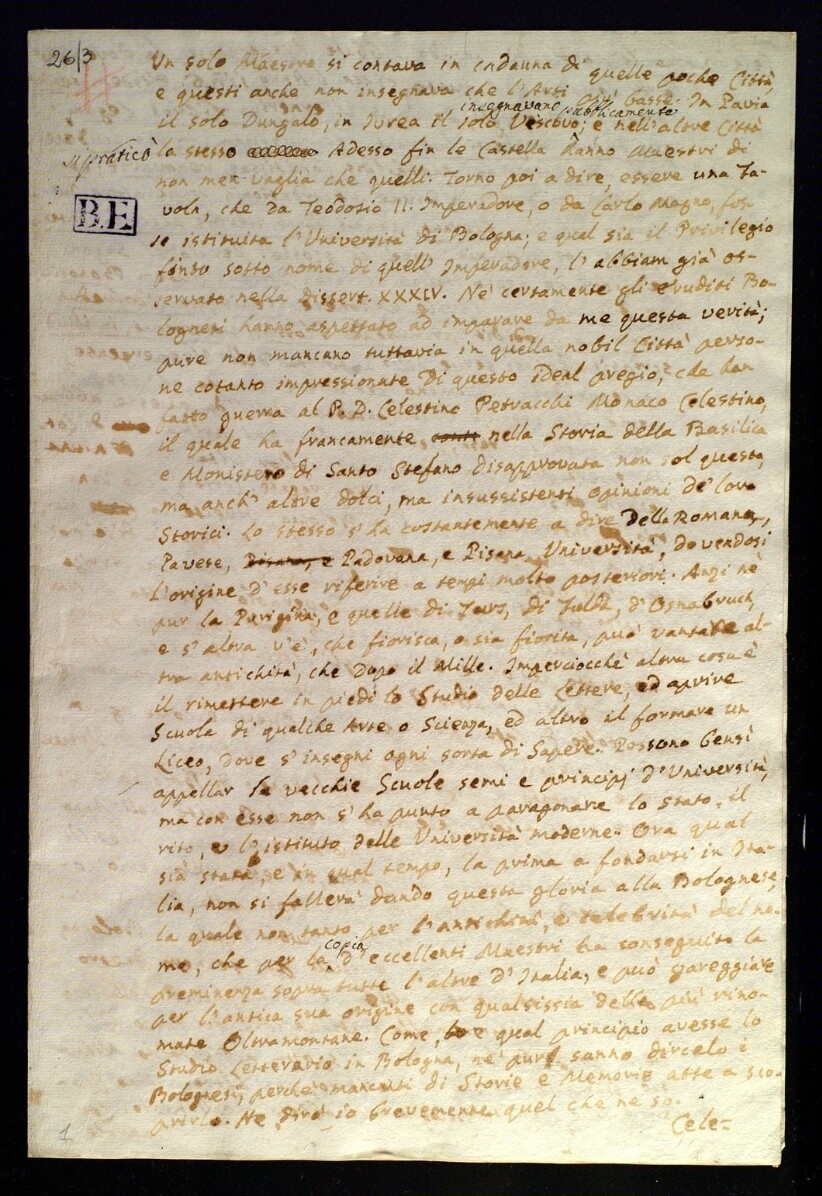 26/3
Un solo Maestro si contava in cadauna di quelle poche Città,
e questi anche non insegnava che l'Arti più basse. In Pavia
insegnavano pubblicamente
il solo Dungalo, in Ivrea il solo Vescovo; e nell'altre Città
si praticò
lo stesso Adesso fin le Castella hanno Maestri di
non men vaglia che quelli. Torno poi a dire, essere una Fa-
B.E
vola, che da Teodosio II. Imperadore, o da Carlo Magno, fos-
se istituita l'Università di Bologna; e qual sia il Privilegio
finto sotto nome di quell' Imperadore, l'abbiam già os-
servato nella Dissert. XXXIV. Nè certamente gli eruditi Bo-
lognesi hanno aspettato ad imparare da me questa verità;
pure non mancano tuttavia in quella nobil Città perso-
ne cotanto impressionate di questo ideal pregio, che han
fatto guerra al P. D. Celestino Petracchi Monaco Celestino,
il quale ha francamente nella Storia della Basilica
e Monistero di Santo Stefano disapprovata non sol questa,
ma anch' altre dolci, ma insussistenti opinioni de' loro
Storici. Lo stesso s'ha costantemente a dire della Romana,
Pavese, Pisana, e Padovana, e Pisana Università, dovendosi
l'origine d'esse riferire a tempi molto posteriori. Anzi nè
pur la Parigina, e quelle di Tours, di Fulda, d'Osnabruch,
e s'altra v'è, che fiorisca, o sia fiorita, può vantare al-
tra antichità, che dopo il Mille. Imperciocchè altra cosa è
il rimettere in piedi lo Studio delle Lettere, ed aprire
Scuola di qualche Arte o Scienza, ed altro il formare un
Liceo, dove s'insegni ogni sorta di Sapere. Possono bensì
appellar le vecchie Scuole semi e principj d'Università,
ma con esse non s'ha punto a paragonare lo stato, il
rito, e l'istituto delle Università moderne. Ora qual
sia stata, e in qual tempo, la prima a fondarsi in Ita-
lia, non si fallerà dando questa gloria alla Bolognese,
la quale non tanto per l'antichità, e celebrità del no-
copia
me, che per la d'eccellenti Maestri ha conseguito la
preminenza sopra tutte l'altre d'Italia, e può gareggiare
per l'antica sua origine con qualsissia delle più rino-
mate Oltramontane. Come, e qual principio avesse lo
Studio Letterario in Bologna, nè pure sanno dircelo i
Bolognesi, perchè mancanti di Storie e Memorie atte a sco-
prirlo. Ne dirò io brevemente quel che ne so.
Cele-
1